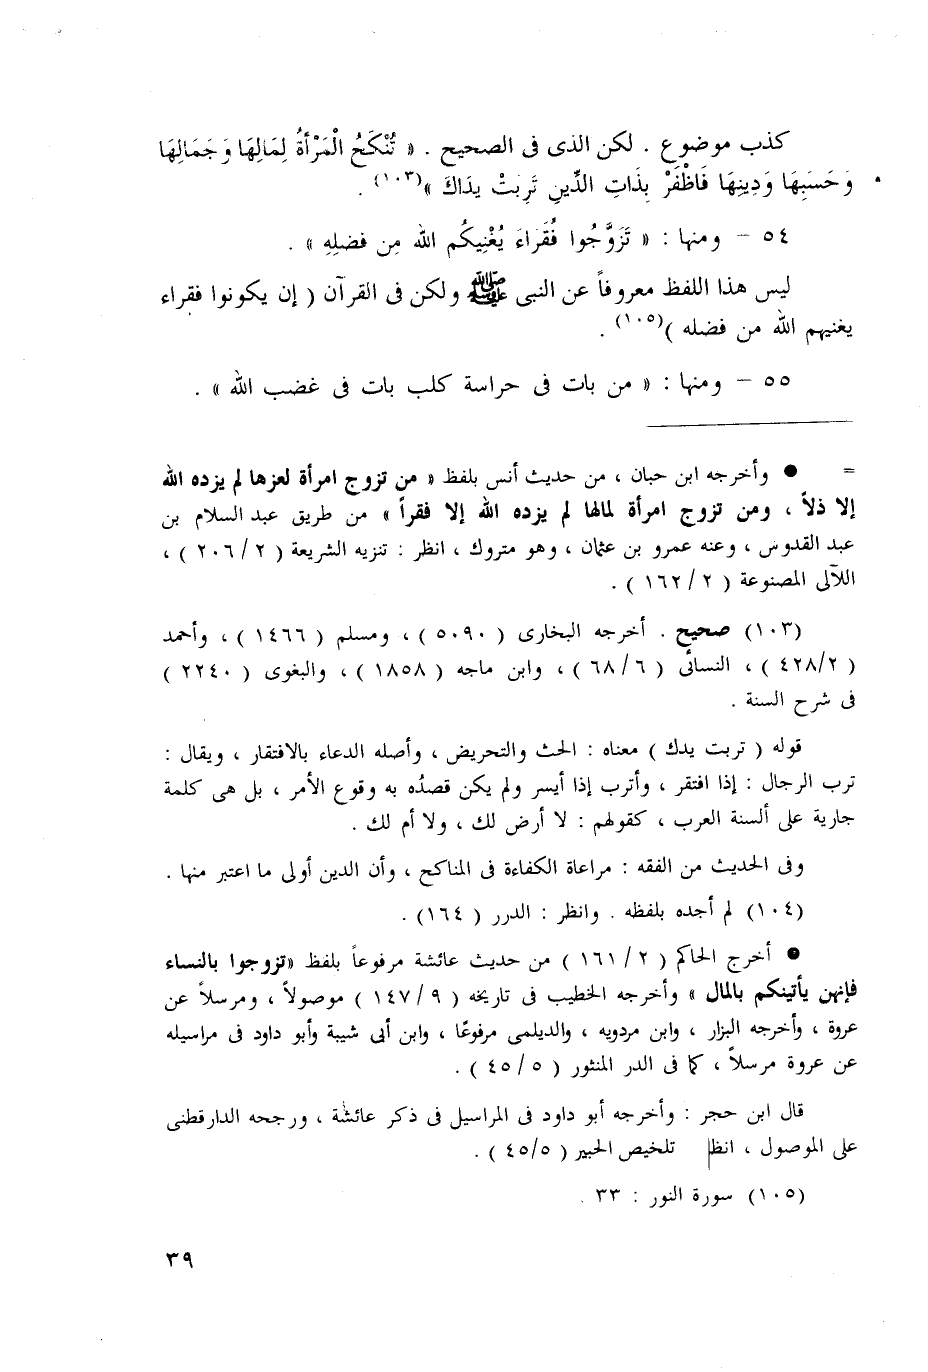 كذب موضوع . لكن الذى فى الصحيح . « تُنْكَحُ الْمَرْأَةُ لِمَالِهَا وَجَمَالِهَا
وَحَسَبِهَا وَدِينِهَا فَاظْفَرْ بِذَاتِ الدِّينِ تَرِبَتْ يدَاكَ »(١٠٣) .
٥٤ – ومنها : « تَزَوَّجُوا فُقَراءَ يُغْنِيكُم الله مِن فضلِهِ » .
ليس هذا اللفظ معروفاً عن النبى ﷺ ولكن فى القرآن ( إن يكونوا فقراء
يغنيهم الله من فضله )(١٠٥) .
٥٥ – ومنها : « من بات فى حراسة كلب بات فى غضب الله » .
= ● وأخرجه ابن حبان ، من حديث أنس بلفظ « من تزوج امرأة لعزها لم يزده الله
إلا ذلاً ، ومن تزوج امرأة لمالها لم يزده الله إلا فقراً » من طريق عبد السلام بن
عبد القدوس ، وعنه عمرو بن عثمان ، وهو متروك ، انظر : تنزيه الشريعة ( ٢٠٦/٢ ) ،
اللآلى المصنوعة ( ١٦٢/٢ ) .
(١٠٣) صحيح . أخرجه البخارى ( ٥٠٩٠ ) ، ومسلم ( ١٤٦٦ ) ، وأحمد
( ٤٢٨/٢ ) ، النسائى ( ٦٨/٦ ) ، وابن ماجه ( ١٨٥٨ ) ، والبغوى ( ٢٢٤٠ )
فى شرح السنة .
قوله ( تربت يدك ) معناه : الحث والتحريض ، وأصله الدعاء بالافتقار ، ويقال :
ترب الرجال : إذا افتقر ، وأترب إذا أيسر ولم يكن قصدُه به وقوع الأمر ، بل هى كلمة
جارية على ألسنة العرب ، كقولهم : لا أرض لك ، ولا أم لك .
وفى الحديث من الفقه : مراعاة الكفاءة فى المناكح ، وأن الدين أولى ما اعتبر منها .
(١٠٤) لم أجده بلفظه . وانظر : الدرر ( ١٦٤ ) .
● أخرج الحاكم ( ١٦١/٢ ) من حديث عائشة مرفوعاً بلفظ «تزوجوا بالنساء
فإنهن يأتينكم بالمال » وأخرجه الخطيب فى تاريخه ( ١٤٧/٩ ) موصولاً ، ومرسلاً عن
عروة ، وأخرجه البزار ، وابن مردويه ، والديلمى مرفوعًا ، وابن أبى شيبة وأبو داود فى مراسيله
عن عروة مرسلاً ، كما فى الدر المنثور ( ٤٥/٥ ) .
قال ابن حجر : وأخرجه أبو داود فى المراسيل فى ذكر عائشة ، ورجحه الدارقطنى
على الموصول ، انظر تلخيص الحبير ( ٤٥/٥ ) .
(١٠٥) سورة النور : ٣٣ .
٣٩